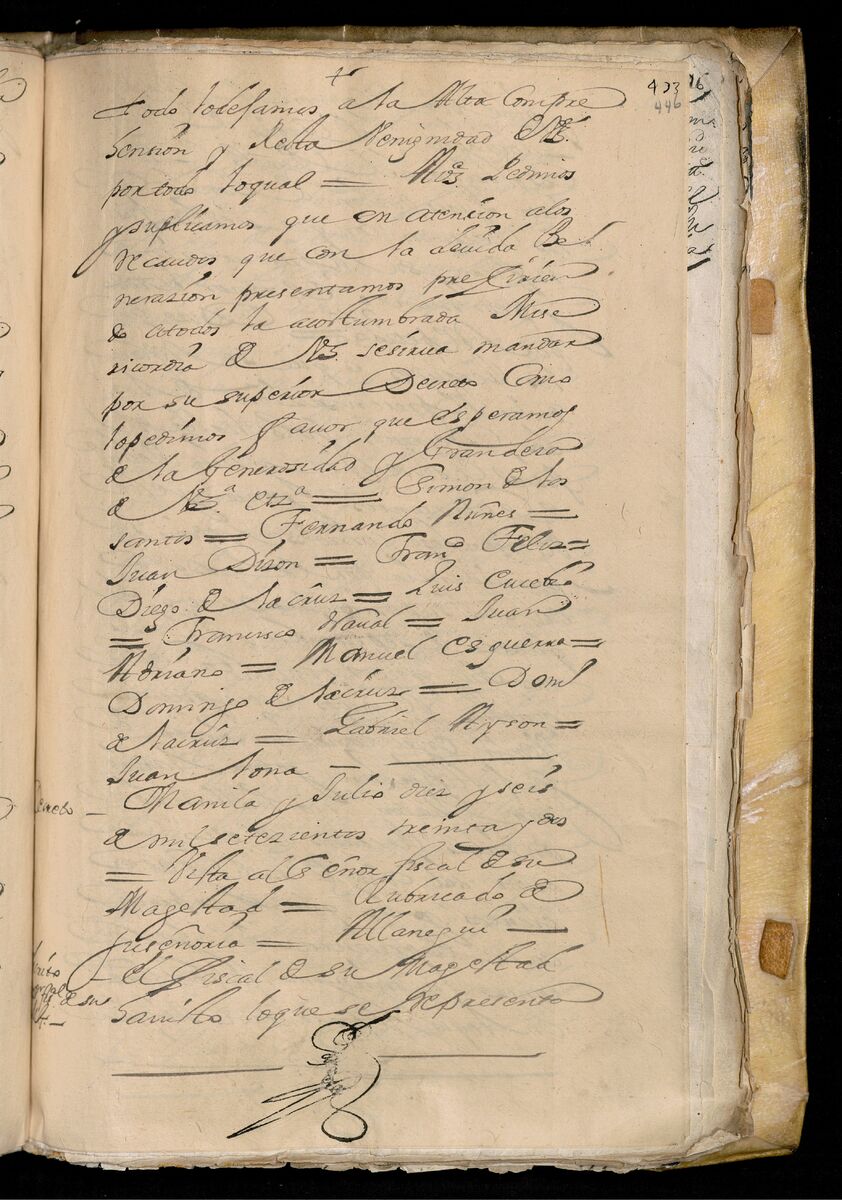 +
433
446
todo lo dejamos a la Alta Compre
hension y Recta Venignidad de VSª.
por todo lo qual = A VSª Pedimos
y suplicamos que en atencion a los
recaudos que con la devida Be
nerazion presentamos prefirien
do a todos la acostumbrada Mise
ricordia de VSª. se sirva mandar
por su superior Decreto Como
lo pedimos favor que esperamos
de la Generosidad y Grandeza
de VSª. etzª = Simon de los
santos = Fernando Nuñes =
Juan Dison = Franco Feliz =
Diego de la cruz = Luis
= Francisco Naual = Juan
Adriano = Manuel Esguerra =
Domingo de la cruz = Doml
de la cruz = Gabriel Ayson =
Juan tona —
Decreto — Manila y Julio diez y seis
de mil setezientos treinta y dos
= Vista al Señor fiscal de su
Magestad = Rubricado de
su señoria = Allanegui —
— El fiscal de su Magestad
de su
ha visto lo que se represento